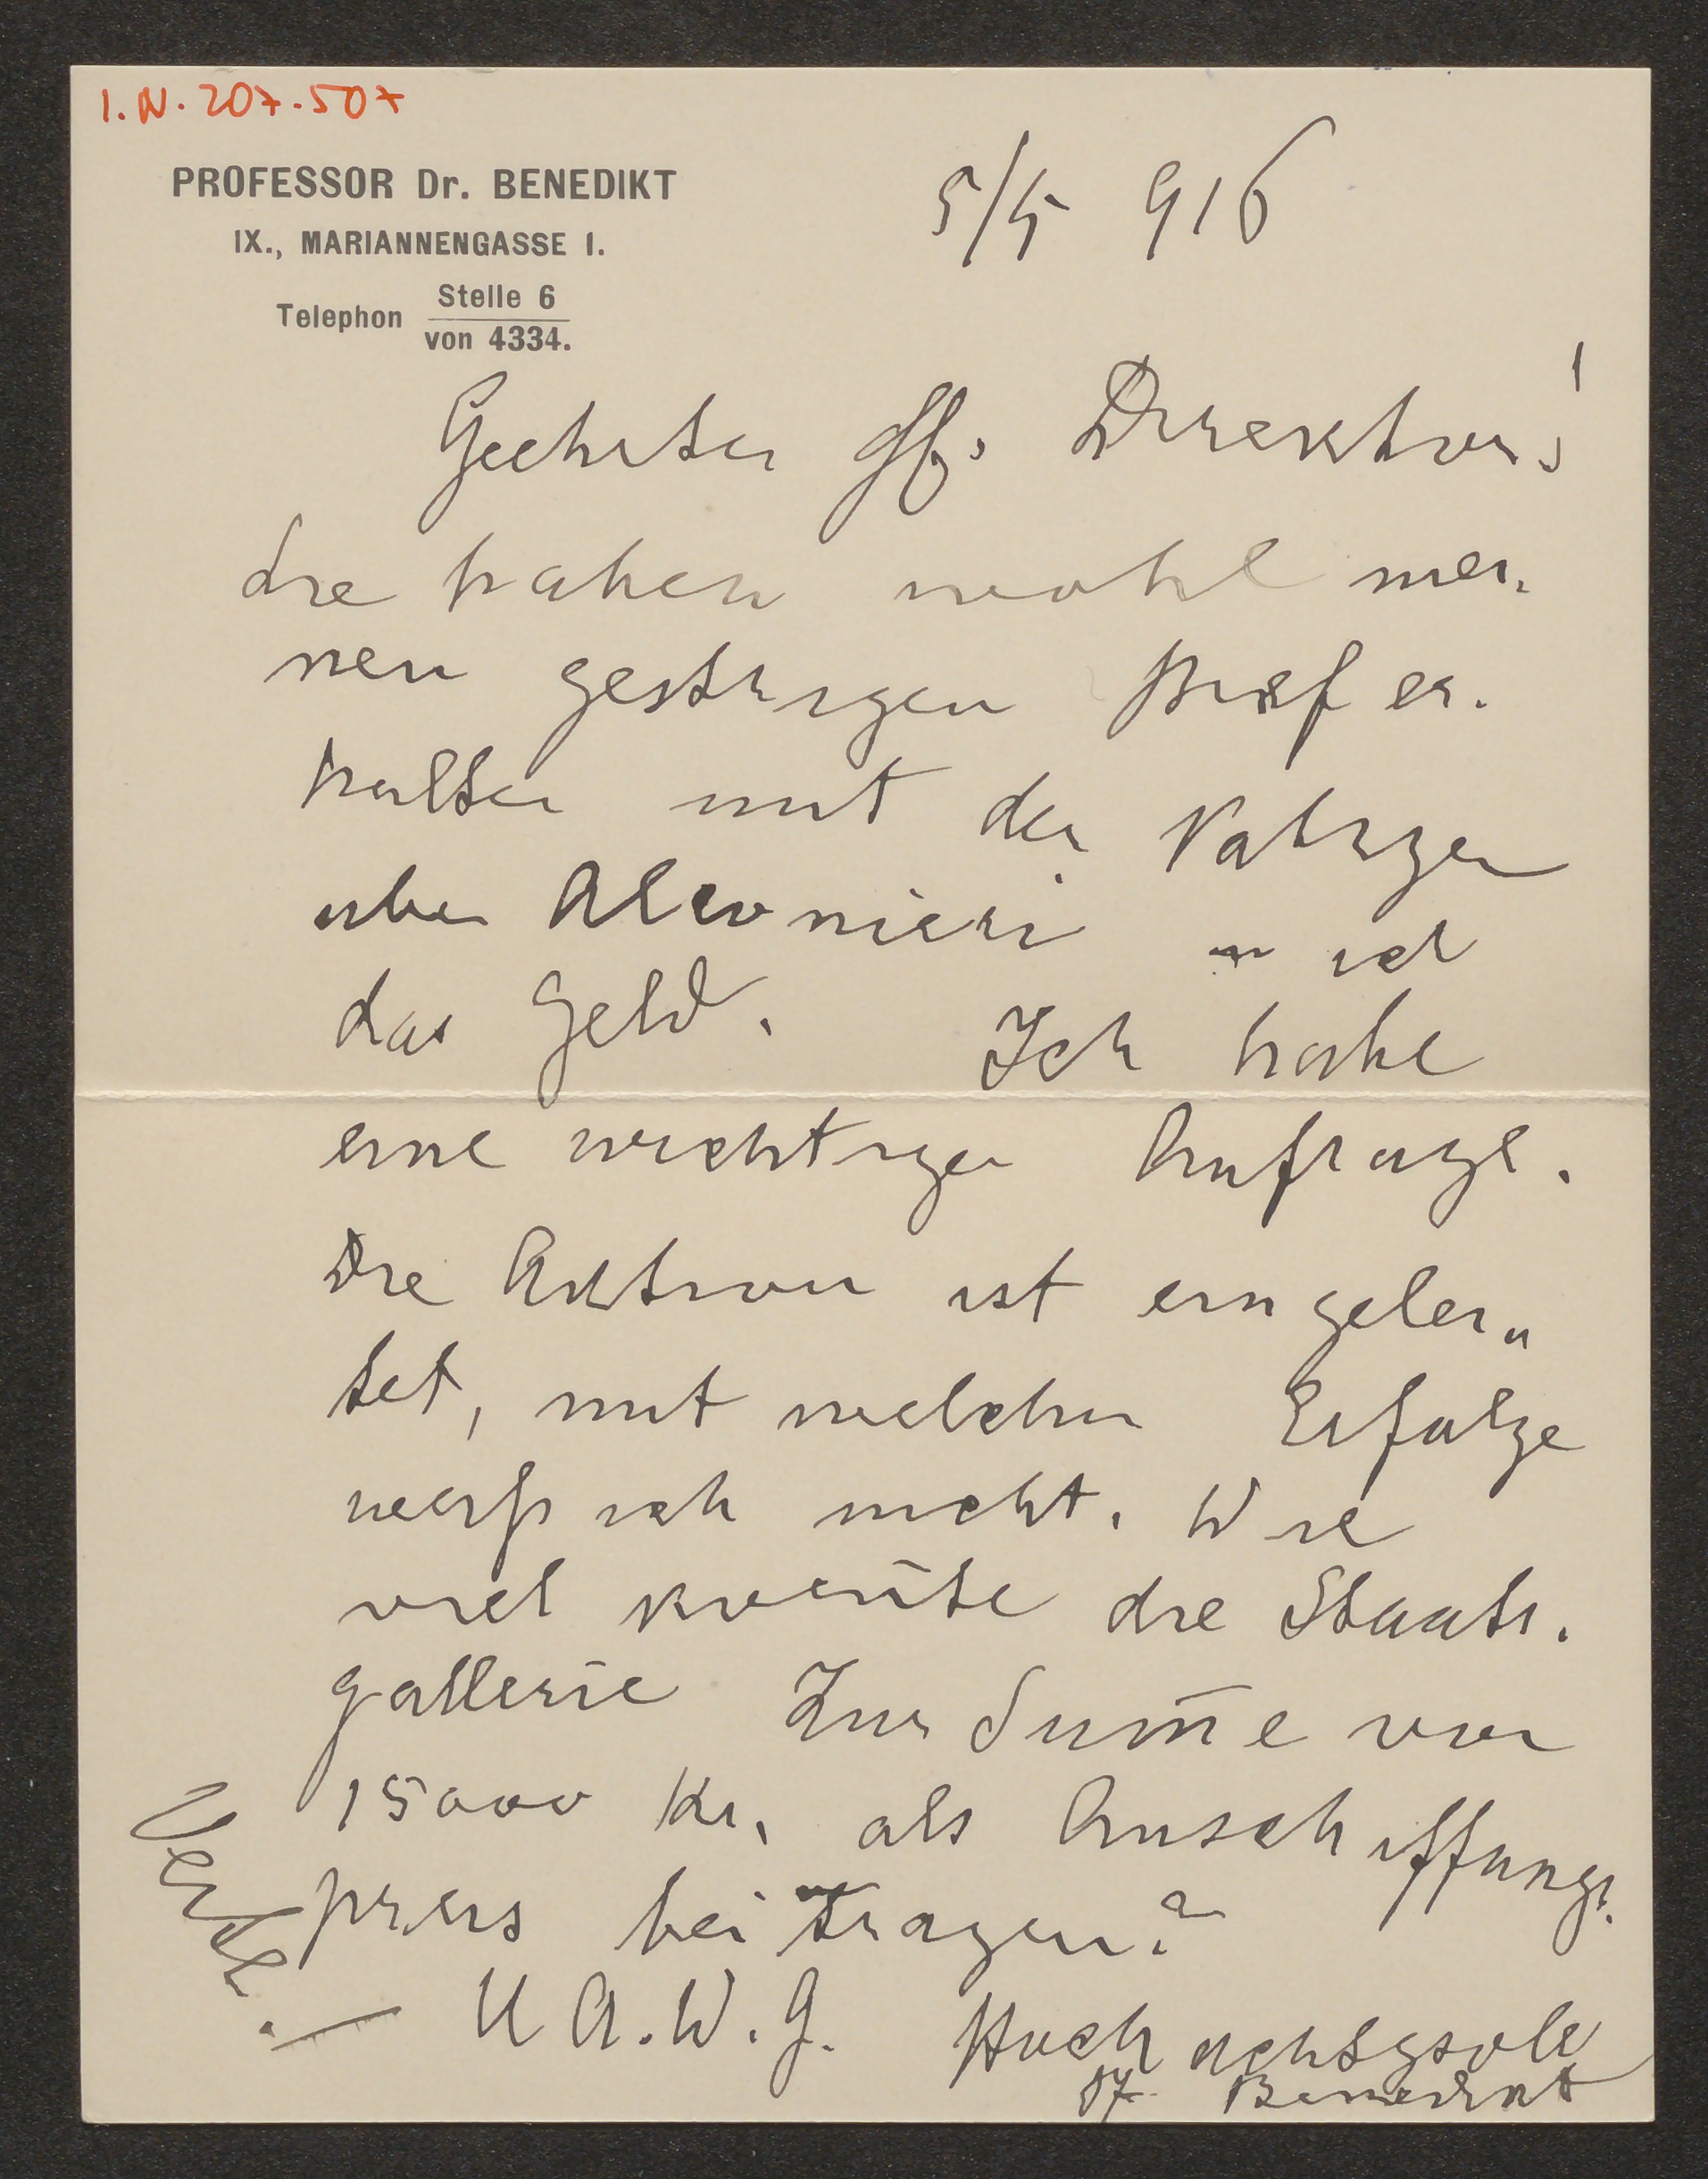 I.N. 207.507
PROFESSOR Dr. BENEDIKT
IX., MARIANNENGASSE 1.
Telephon Stelle 6
von 4334.
5/5 916
Geehrter H. Direktor!
Sie haben wohl mei-
nen gestrigen Brief er-
halten mit den Notizen
über ich
das Geld. Ich habe
eine wichtige Anfrage.
Die Aktion ist eingelei„
tet, mit welchem Erfolge
weiß ich nicht. Wie
viel koen̄te die Staats-
gallerie zur Sum̄e von
15000 Kr. als Anschaffungs-
preis beitragen?
U A.W.G. Hochachtgsvoll
Benedikt
Verte!